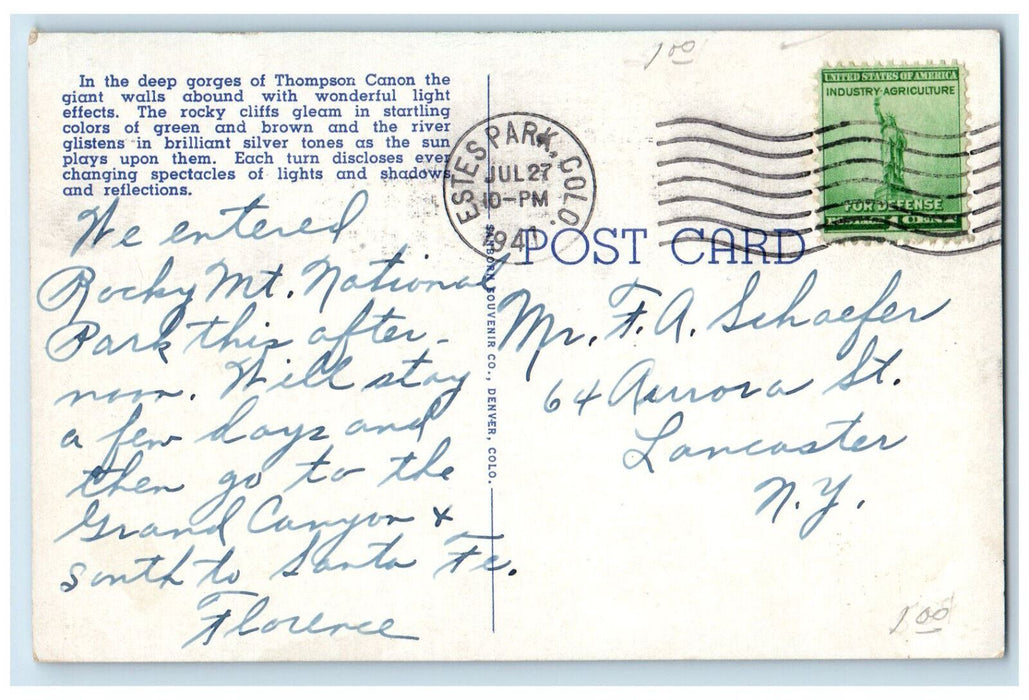 In the deep gorges of Thompson Canon the
giant walls abound with wonderful light
effects. The rocky cliffs gleam in startling
colors of green and brown and the river
glistens in brilliant silver tones as the sun
plays upon them. Each turn discloses ever
changing spectacles of lights and shadows
and reflections.
We entered
Rocky Mt. National
Park this after-
noon. Will stay
a few days and
then go to the
Grand Canyon &
south to Santa Fe.
Florence
SANBORN SOUVENIR CO., DENVER, COLO.
ESTES PARK, COLO.
JUL 27
10-PM
1941
1 00
UNITED STATES OF AMERICA
INDUSTRY·AGRICULTURE
FOR DEFENSE
POST CARD
Mr. F. A. Schaefer
64 Aurora St.
Lancaster
N. Y.
1.00